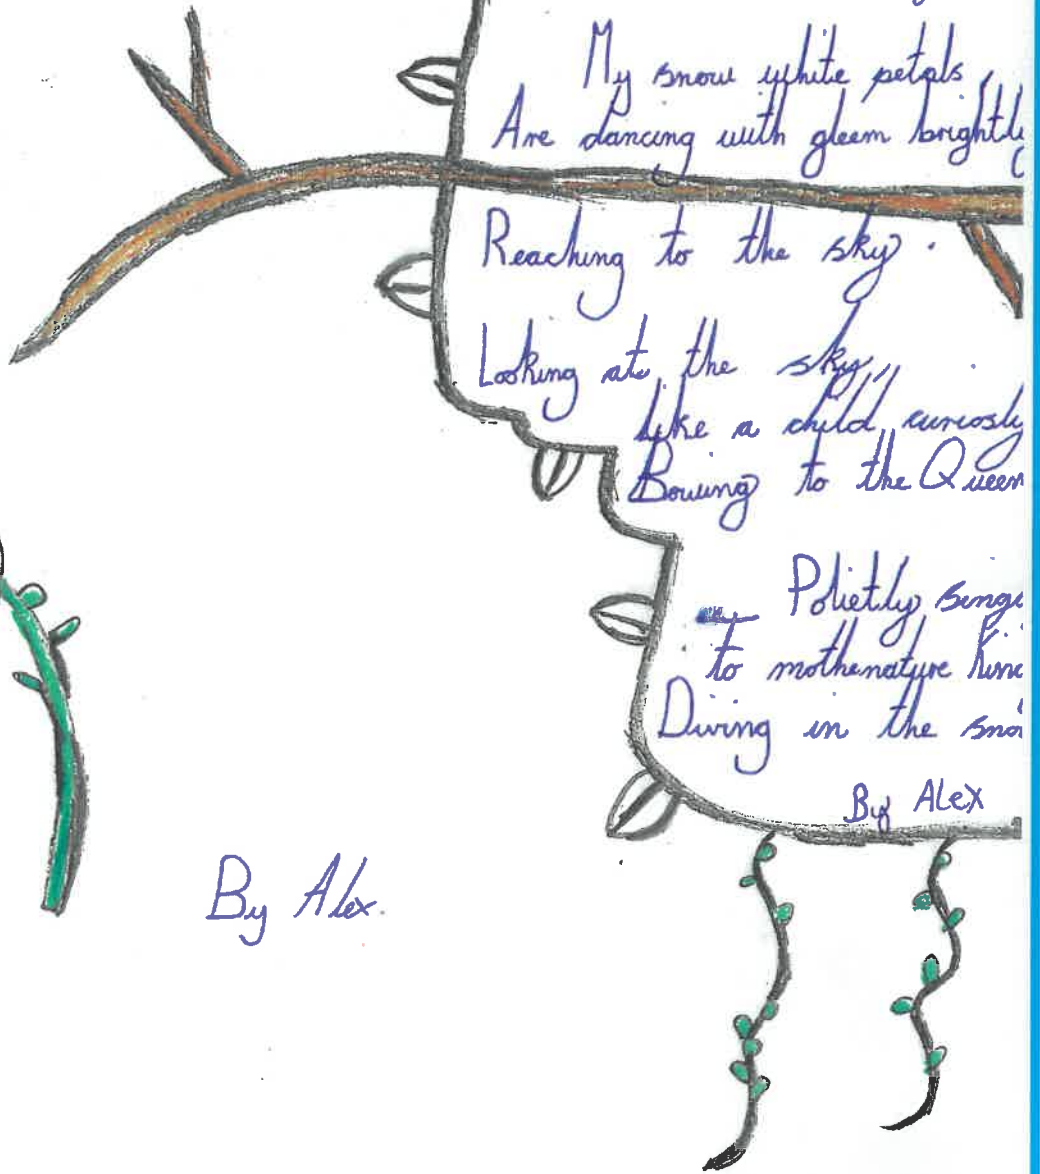 My snow white petals,
Are dancing with gleem brightly
Reaching to the sky.
Looking at the sky,
like a child, curiosly
Bowing to the Queen
Polietly
To mothernature
Diving in the
By Alex
By Alex.